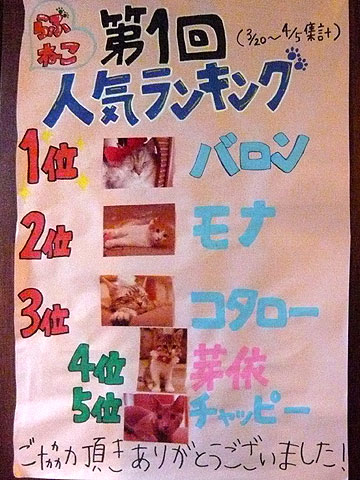 らぶ
ねこ
第1回
(3/20〜4/5集計)
人気ランキング
1位 バロン
2位 モナ
3位 コタロー
4位 芽依
5位 チャッピー
ご協力頂きありがとうございました!